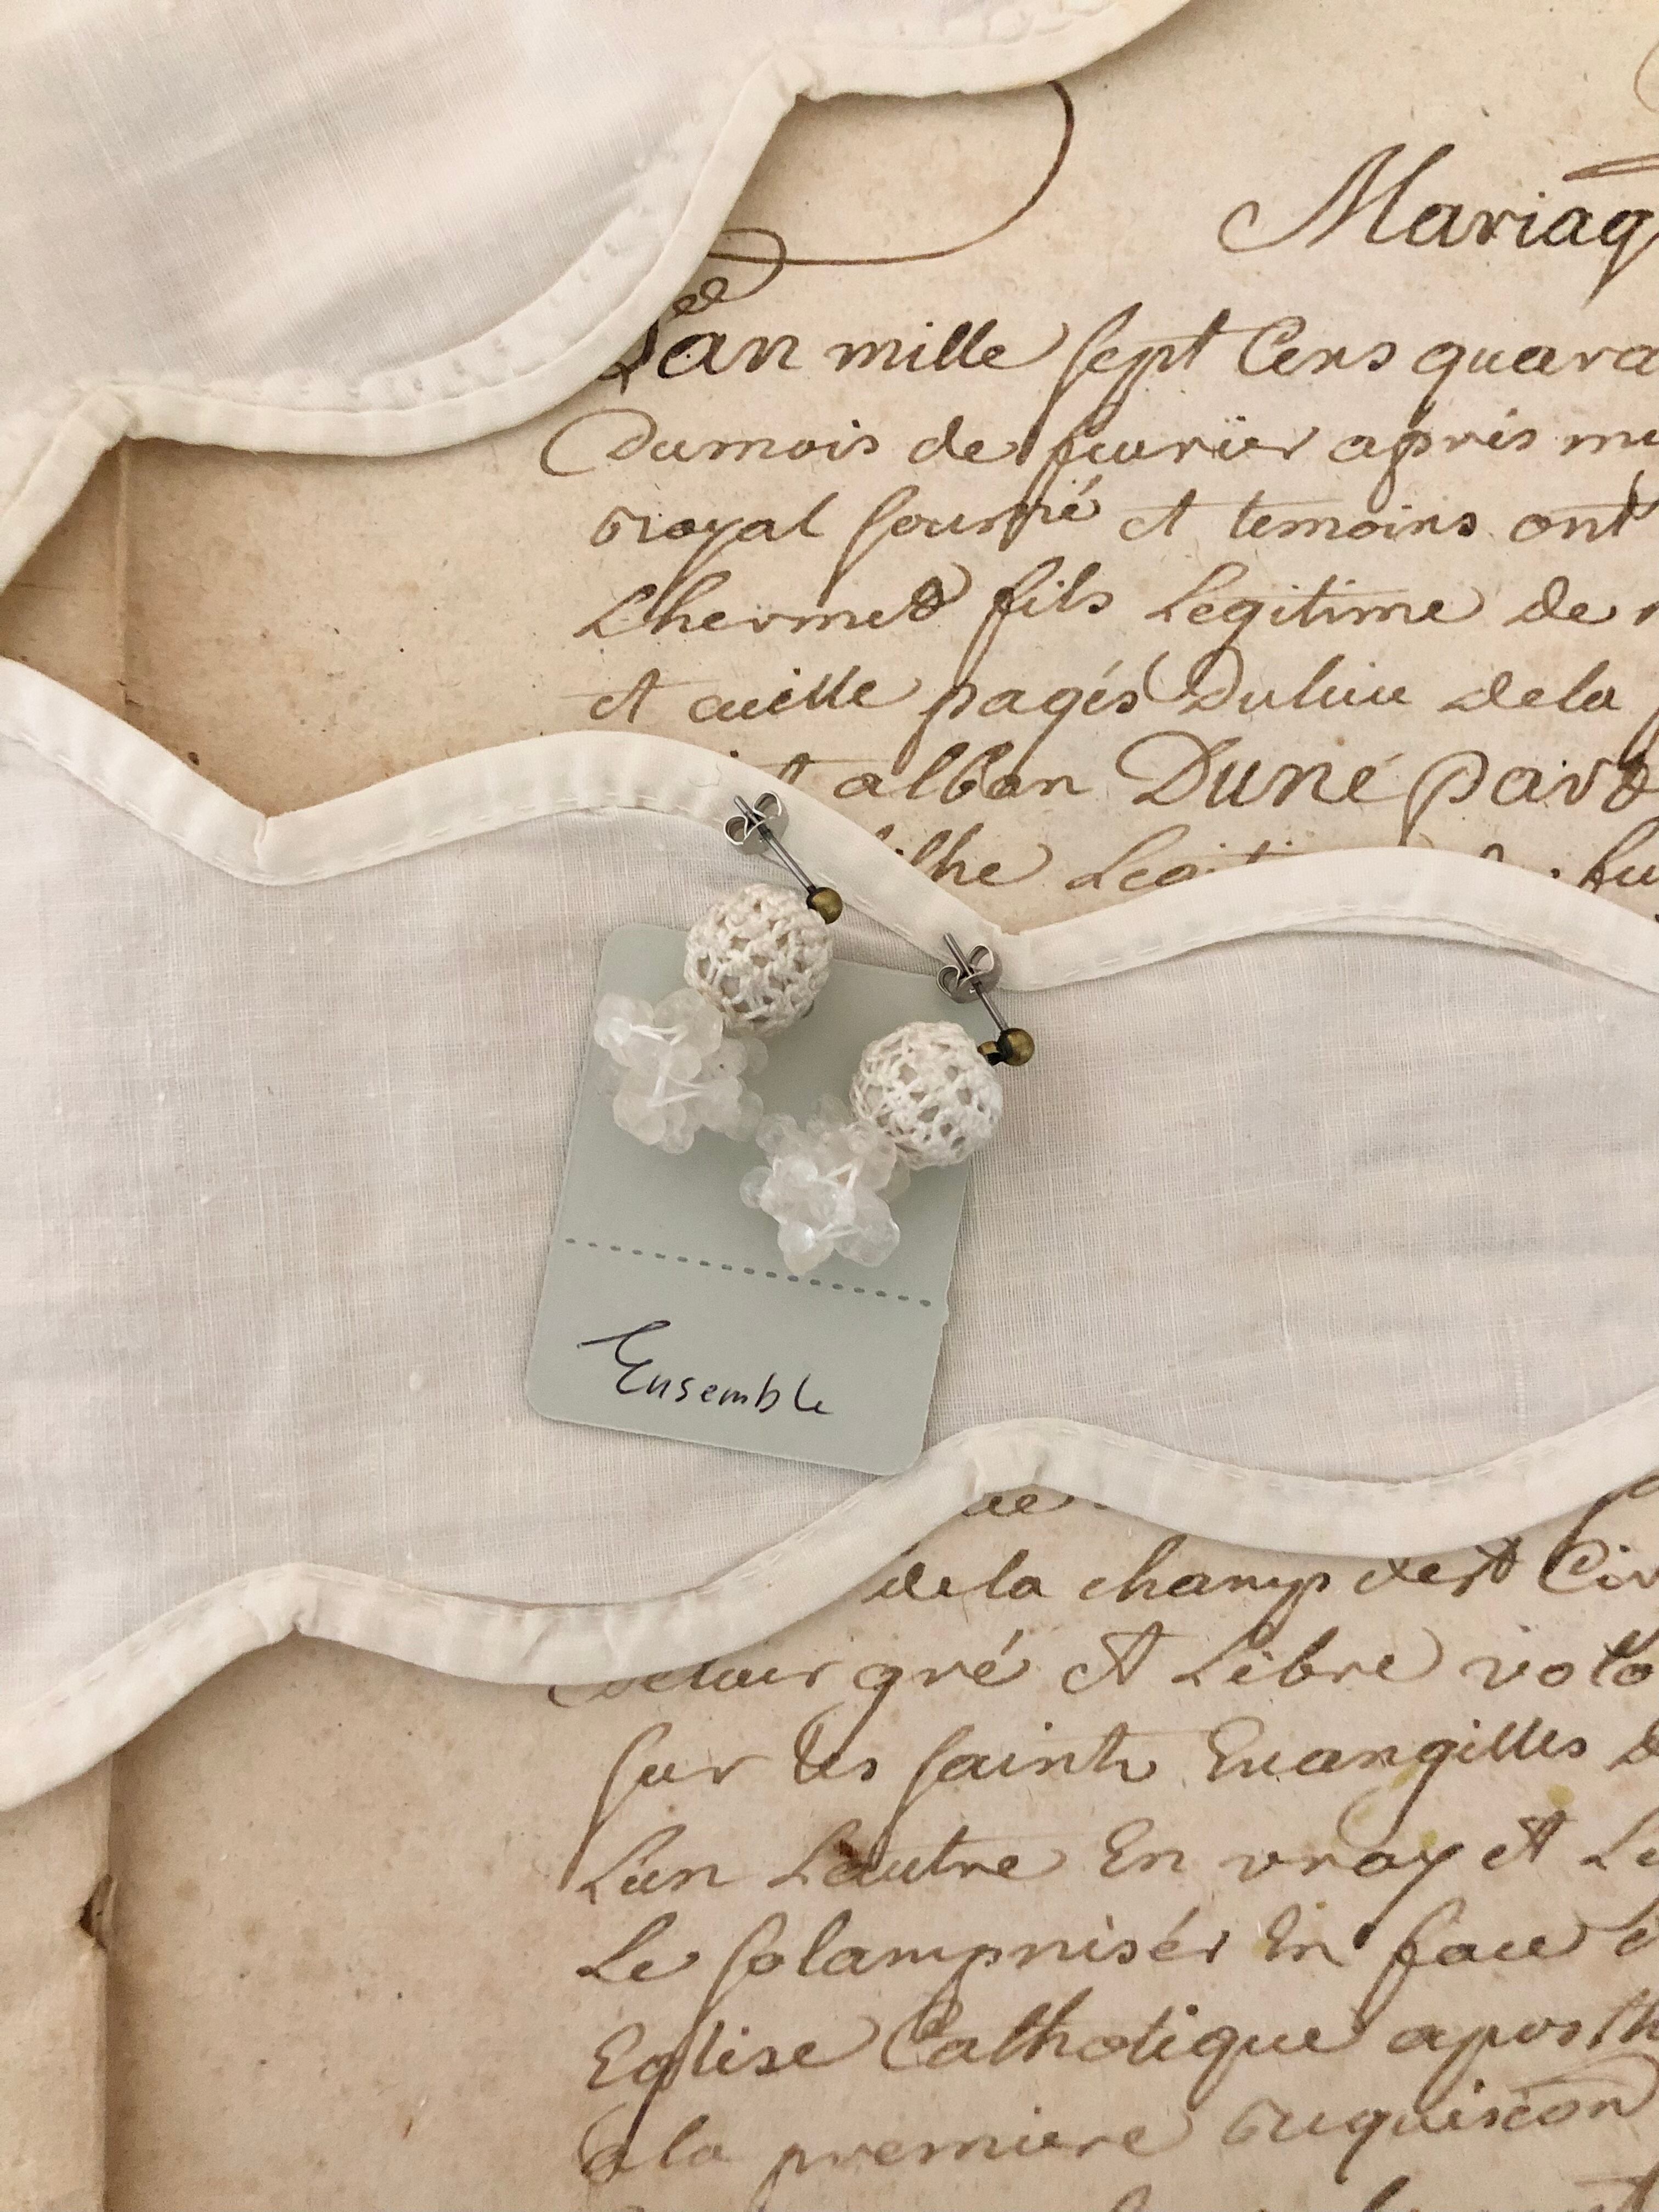 Mariag
Lan mille sept Cens quara
Dumois de feurier apris
royal soussné et temoins ont
Lhermet fils Legitime de
et cecille pagés Dulieu dela
alban Dune part
filhe Legiti
Ensemble
dela champ dest
deleur gré et Libre volo
sur les saints Euangilles d
Lun Lautre En vray et Le
Le solampnisér En face d
Eglise Catholique aposth
a la premiere requisi͠on